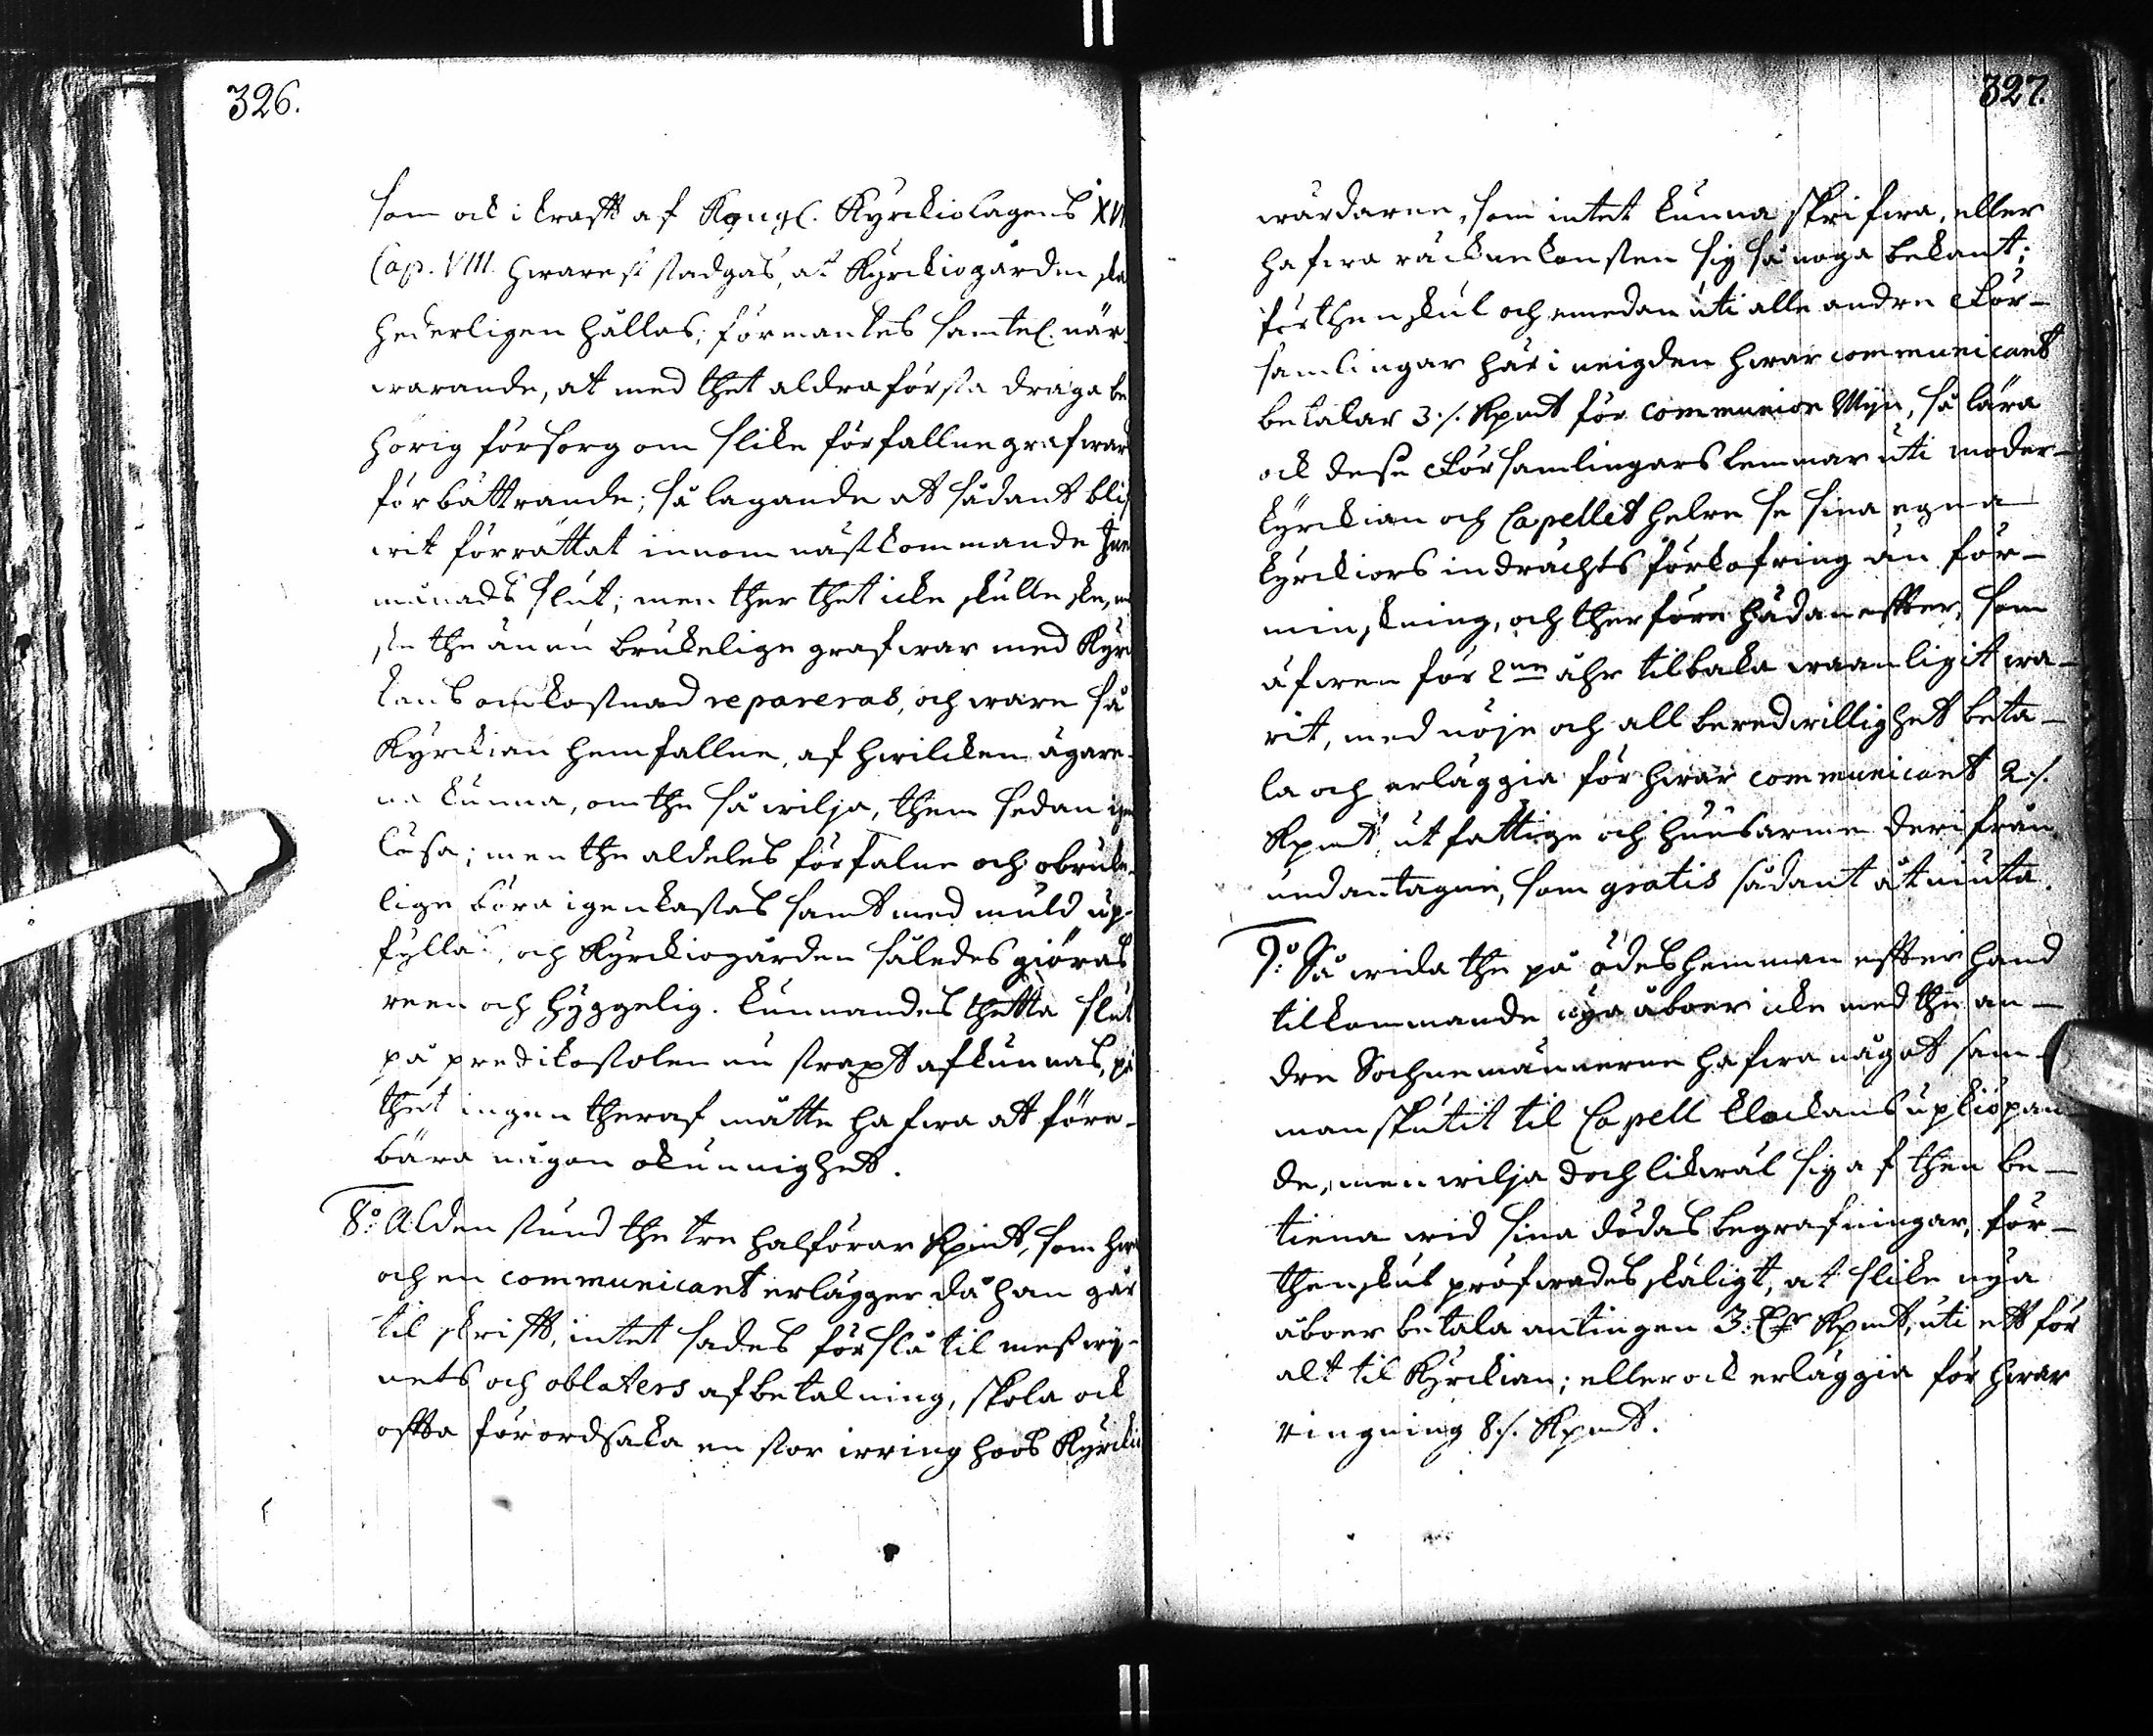 326.
som ock i krafft af Kongl. Kyrckiolagens XVI
Cap. VIII. hwarest stadgas, at Kyrckiogården ska
hederligen hållas; förmantes samtel. när-
warande, at med thet aldraförsta draga be
hörig försorg om slike förfallne grafwar
förbättrande; så lagande at sådant blif
wit förrättat innom nästkommande Jun
månads slut; men ther thet icke skulle ske, 
ske the ännu brukelige grafwar med Kyrc
kans omkostnad repareras, och ware så
Kyrckian hemfallne, af hwilcken ägare-
ne kunna, om the så wilja, them sedan igen
lösa; men the aldeles förfalne och obruke-
lige böra igenkastas samt med muld up-
fyllas, och Kyrckiogården således giöras
reen och hyggelig. Kunnandes thetta slut
på predikostolen nu straxt afkunnas, på
thet ingen theraf måtte hafwa att före-
bära någon okunnighet.
8:o Alden stund the tre halförar Kpmt, som hwar
och en communicant erlägger då han går
til skrifft, intet sades förslå til messwy-
nets och oblaters afbetalning, skola ock
offta förordsaka en stor irring hoos Kyrckio
327.
wärdarne, som intet kunna skrifwa, eller
hafwa räcknekonsten sig så noga bekant;
förthenskul och emedan uti alle andre För-
samlingar här i neigden hwar communicant
betalar 3./. Kpmt för communion Wijn, så lära
ock desse Församlingars lemmar uti moder-
kyrckian och Capellet helre se sina egna
kyrckiors indrächts förkofring än för-
minskning, och therföre hädaneffter, som
äfwen för 2ne åhr tilbaka waanligit wa-
rit, med nöje och all beredwillighet beta-
la och erläggia för hwar communicant 2./.
Kpmt, ut fattige och huusarme derifrån
undantagne, som gratis sådant åtniuta.
9:o Så wida the på ödeshemman effter hand
tilkommande nya åboer icke med the an-
dre Sochnemännerne hafwa något sam-
manskutit til Capell Klockans upkiöpan
de, men wilja doch likwäl sig af then be-
tiena wid sina dödas begrafningar, för-
thenskul pröfwades skäligt, at slike nya
åboer betala antingen 3: Dr Kpmt, uti ett för
alt til Kyrckian; eller ock erläggia för hwar
ringning 8./. Kpmt.